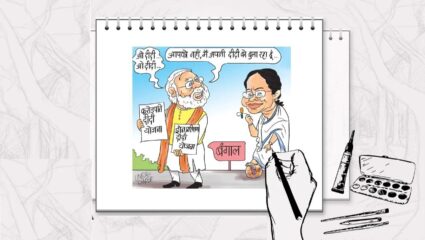 ओ दीदी
ओ दीदी...
आपको नहीं, मैं अपनी दीदी को बुला रहा हूं...
दीदी
योजना
दीदी
योजना
बंगाल